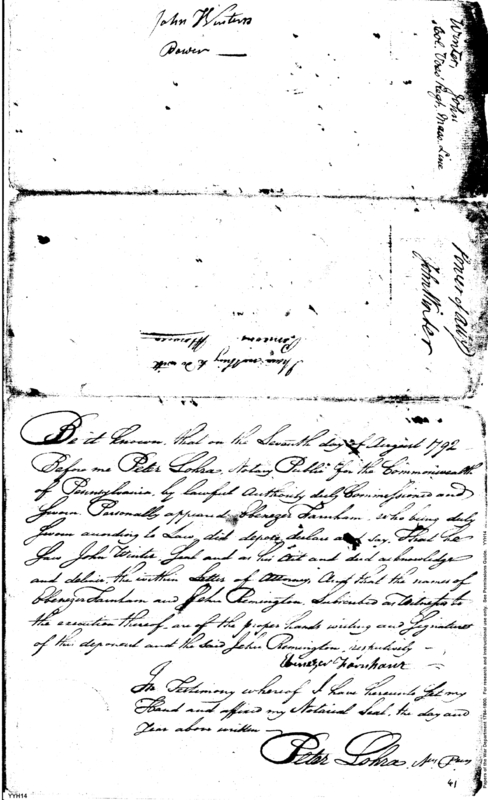 John Winters
Power
Winter, John
Col. Vose's Regt. Mass. Line
Power of Atty
John Winter
I have nothing to do with
Be it known, that on the Seventh day of August 1792
Before me Peter Lohra, Notary Public for the Commonwealth
of Pennsylvania, by lawful Authority duly Commissioned and
Sworn Personally appeared Ebenezer Farnham, who being duly
Sworn according to Law, did depose declare and say, That he
Saw John Winter Seal and as his Act and did acknowledge
and deliver the within Letter of Attorney, And that the names of
Ebenezer Farnham and John Remington, Subscribed as Witnesses to
the execution thereof, are of the proper hands writing and Signatures
of this deponent and the said John Remington, respectively
Ebenezer Farnham
In Testimony whereof I have hereunto Set my
Hand and affixed my Notarial Seal, the day and
Year above written
Peter Lohra, Not. Pub.
41
YYH14
Papers of the War Department 1784-1800. For research and instructional use only. See Permissions Guide YYH14